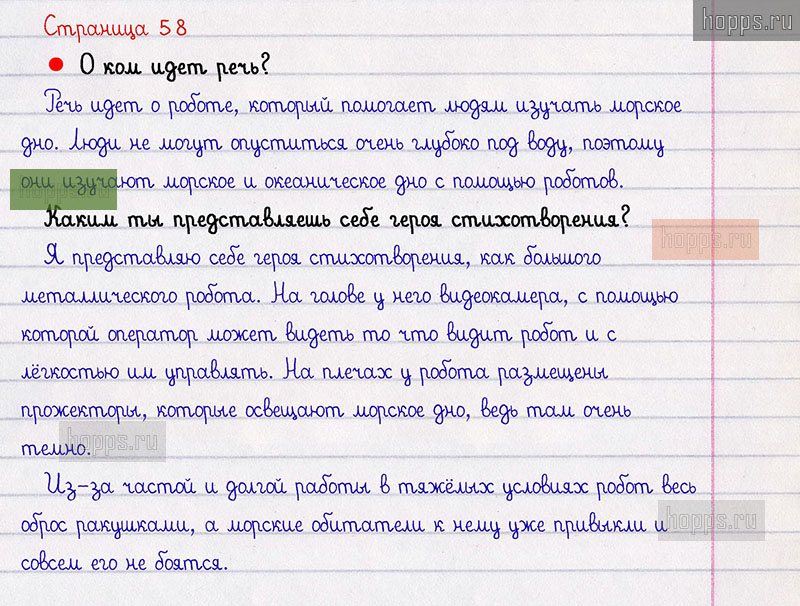 hopps.ru
Страница 58
О ком идет речь?
Речь идет о роботе, который помогает людям изучать морское
дно. Люди не могут опуститься очень глубоко под воду, поэтому
они изучают морское и океаническое дно с помощью роботов.
hopps.ru
Каким ты представляешь себе героя стихотворения?
hopps.ru
Я представляю себе героя стихотворения, как большого
металлического робота. На голове у него видеокамера, с помощью
которой оператор может видеть то что видит робот и с
лёгкостью им управлять. На плечах у робота размещены
прожекторы, которые освещают морское дно, ведь там очень
темно.
hopps.ru
Из-за частой и долгой работы в тяжёлых условиях робот весь
оброс ракушками, а морские обитатели к нему уже привыкли и
hopps.ru
совсем его не боятся.